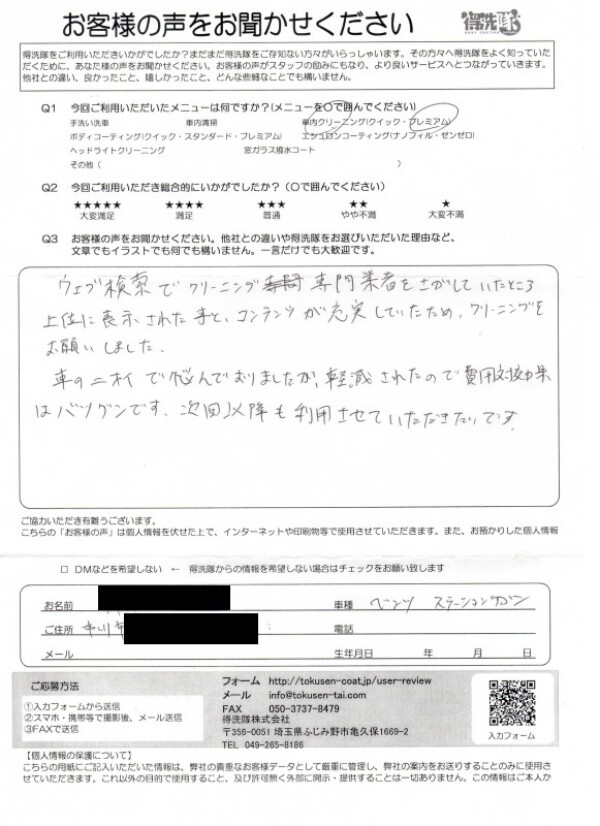 お客様の声をお聞かせください
得洗隊
得洗隊をご利用いただきいかがでしたか？まだまだ得洗隊をご存知ない方々がいらっしゃいます。その方々へ得洗隊をよく知っていた
だくために、あなた様の声をお聞かせください。お客様の声がスタッフの励みにもなり、より良いサービスへとつながっていきます。
他社との違い、良かったこと、嬉しかったこと、どんな些細なことでも構いません。
Q1 今回ご利用いただいたメニューは何ですか？(メニューを○で囲んでください)
手洗い洗車 車内清掃 車内クリーニング(クイック・プレミアム)
ボディコーティング(クイック・スタンダード・プレミアム) エシュロンコーティング(ナノフィル・ゼンゼロ)
ヘッドライトクリーニング 窓ガラス撥水コート
その他（ ）
Q2 今回ご利用いただき総合的にいかがでしたか？（○で囲んでください）
★★★★★ ★★★★ ★★★ ★★ ★
大変満足 満足 普通 やや不満 大変不満
Q3 お客様の声をお聞かせください。他社との違いや得洗隊をお選びいただいた理由など、
文章でもイラストでも何でも構いません。一言だけでも大歓迎です。
ウェブ検索でクリーニング 専門業者をさがしていたところ
上位に表示された事と、コンテンツが充実していたため、クリーニングを
お願いしました.
車のニオイで悩んでおりましたが、軽減されたので費用対効果
はバツグンです、次回以降も利用させていただきたいです
ご協力いただき有難うございます。
こちらの「お客様の声」は個人情報を伏せた上で、インターネットや印刷物等で使用させていただきます。また、お預かりした個人情報
□ DMなどを希望しない ← 得洗隊からの情報を希望しない場合はチェックをお願い致します
お名前 車種 ベンツ ステーションワゴン
ご住所 電話
メール 生年月日 年 月 日
ご応募方法
①入力フォームから送信
②スマホ・携帯等で撮影後、メール送信
③FAXで送信
フォーム http://tokusen-coat.jp/user-review
メール info@tokusen-tai.com
FAX 050-3737-8479
得洗隊株式会社
〒356-0051 埼玉県ふじみ野市亀久保1669-2
TEL 049-265-8186
入力フォーム
【個人情報の保護について】
こちらの用紙にご記入いただいた情報は、弊社の貴重なお客様データとして厳重に管理し、弊社の案内をお送りすることのみに使用さ
せていただきます。これ以外の目的で使用すること、及び許可無く外部に開示・提供することは一切ありません。この情報はご本人か